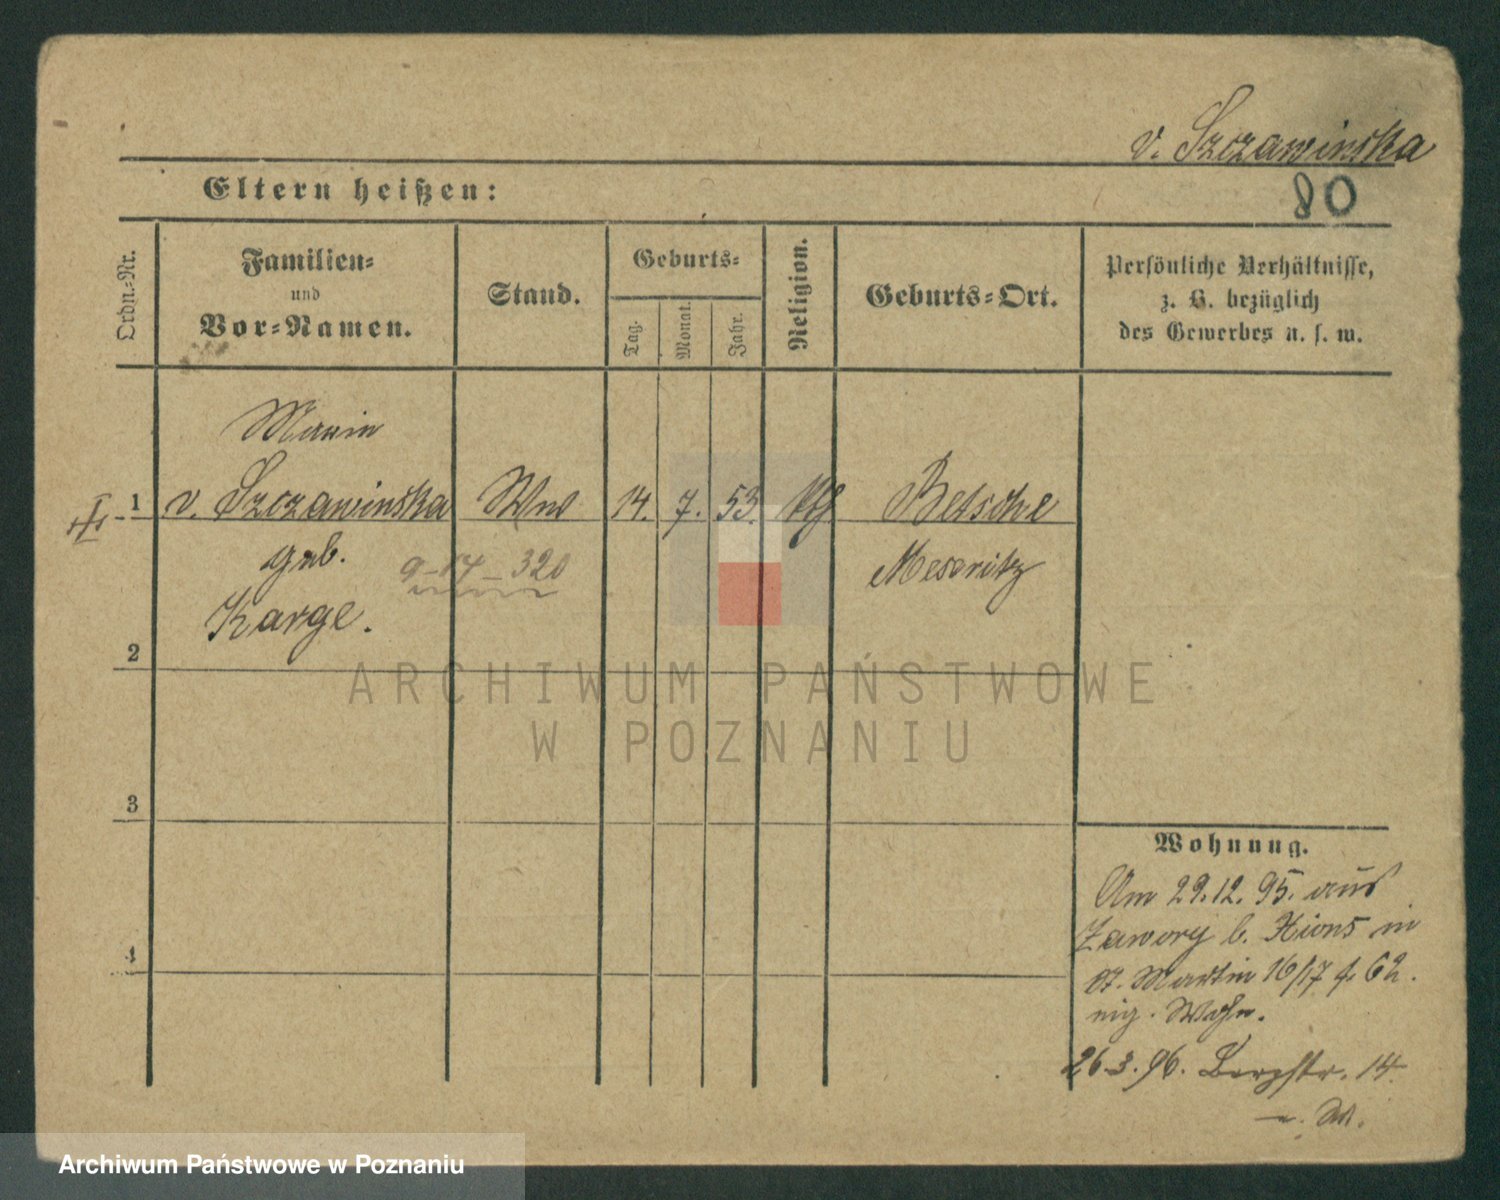 v. Szczawinska
80
Eltern heißen:
Ordn.-Nr.
Familien-
und
Vor-Namen.
Stand.
Geburts-
Tag.
Monat.
Jahr.
Religion.
Geburts-Ort.
Persönliche Verhältnisse,
z. B. bezüglich
des Gewerbes u. s. w.
Marie
1 v. Szczawinska Ww 14. 7. 53. kth Betsche
geb. Meseritz
9-14-320
Karge.
2
3
4
Wohnung.
Am 29.12.95. aus
Zawory b. Xions in
St. Martin 16/17 f. 62.
eig. Wohn.
26.3.96. Bergstr. 14.
ARCHIWUM PAŃSTWOWE
W POZNANIU
Archiwum Państwowe w Poznaniu